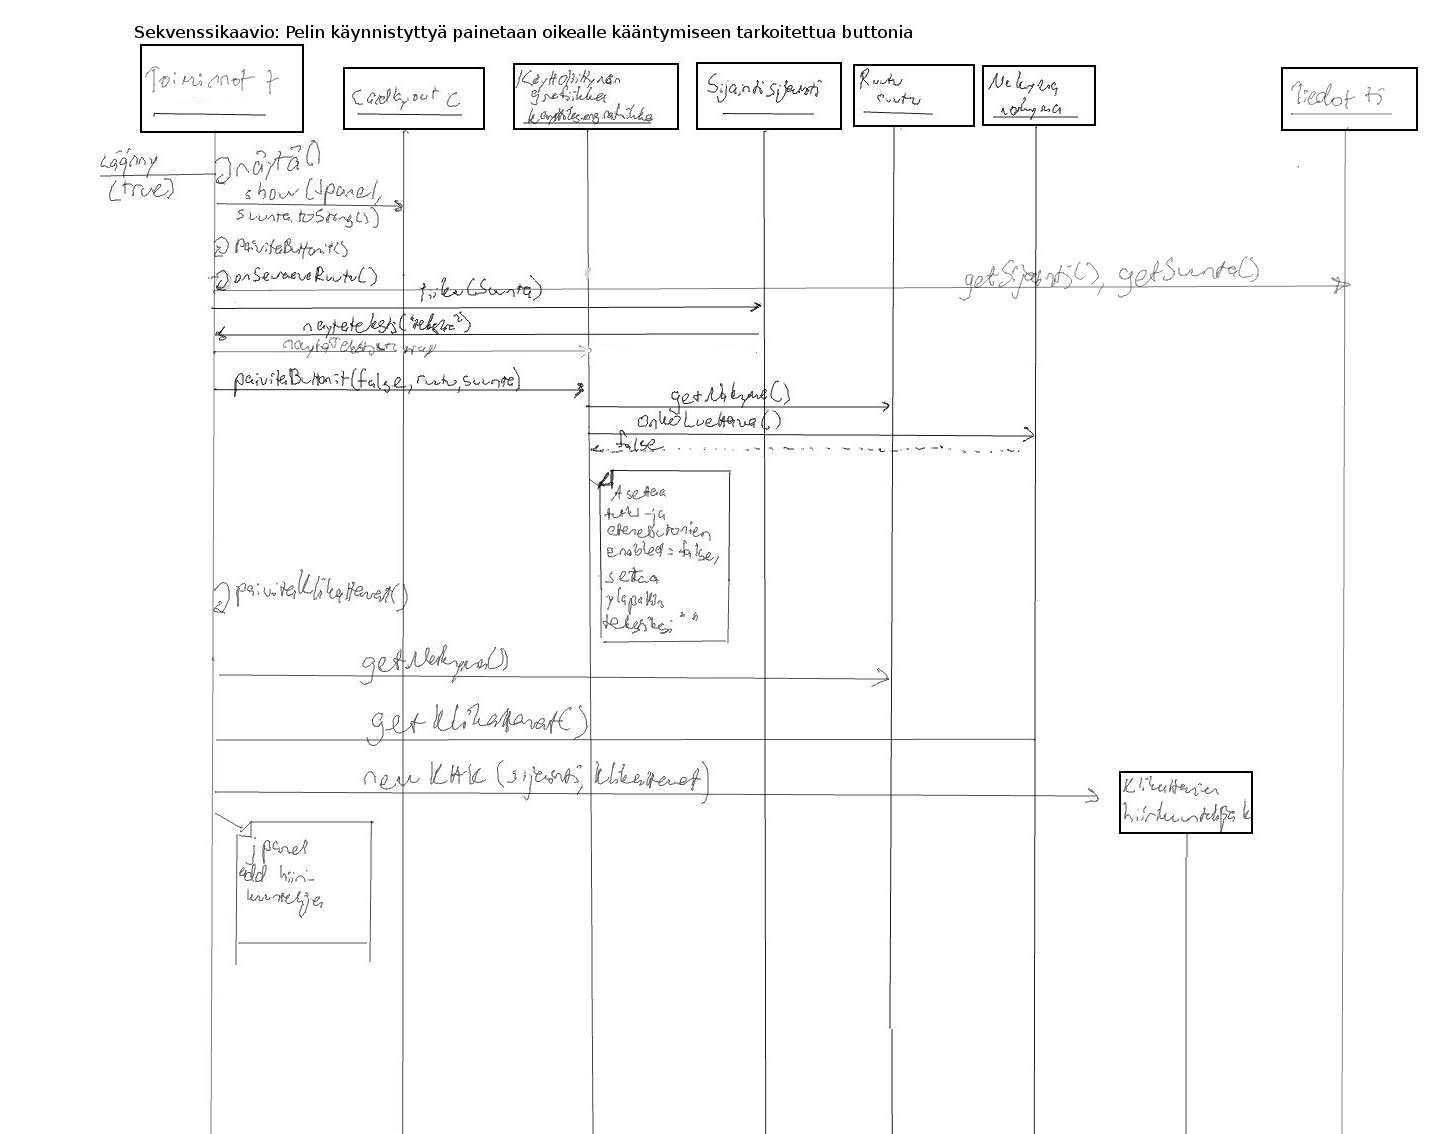 Sekvenssikaavio: Pelin käynnistyttyä painetaan oikealle kääntymiseen tarkoitettua buttonia
Toiminnot t
Cardlayout C
Käyttöliittymän
grafiikka
Sijainti sijainti
Ruutu
ruutu
Näkymä
näkymä
Tiedot ti
käänny
(true)
näytä()
show(Jpanel,
suunta.toString())
PaivitaButtonit()
onSeuraavaRuutu()
getSijainti(), getSuunta()
(Suunta)
paivitaButtonit(false, ruutu, suunta)
getNakyma()
onkoLuettava()
false
Asetaa
tutki-ja
etenebutonien
enabled = false,
settaa
tekstiksi " "
paivitaKlikattavat()
getNakyma()
getKlikattavat()
new KHK (sijainti, klikattavat)
Klikattavien
hiirikuuntelija k
jpanel
add hiiri-
kuuntelija